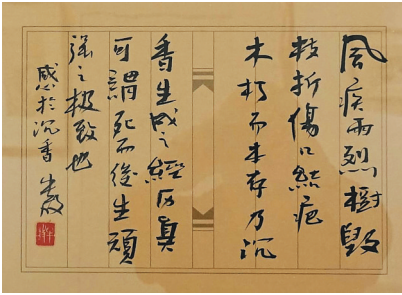 風疾雨烈樹毀
枝折傷口結疤
木朽而本存乃沉
香生成之經歷真
可謂死而後生頑
強之極致也
感於沉香